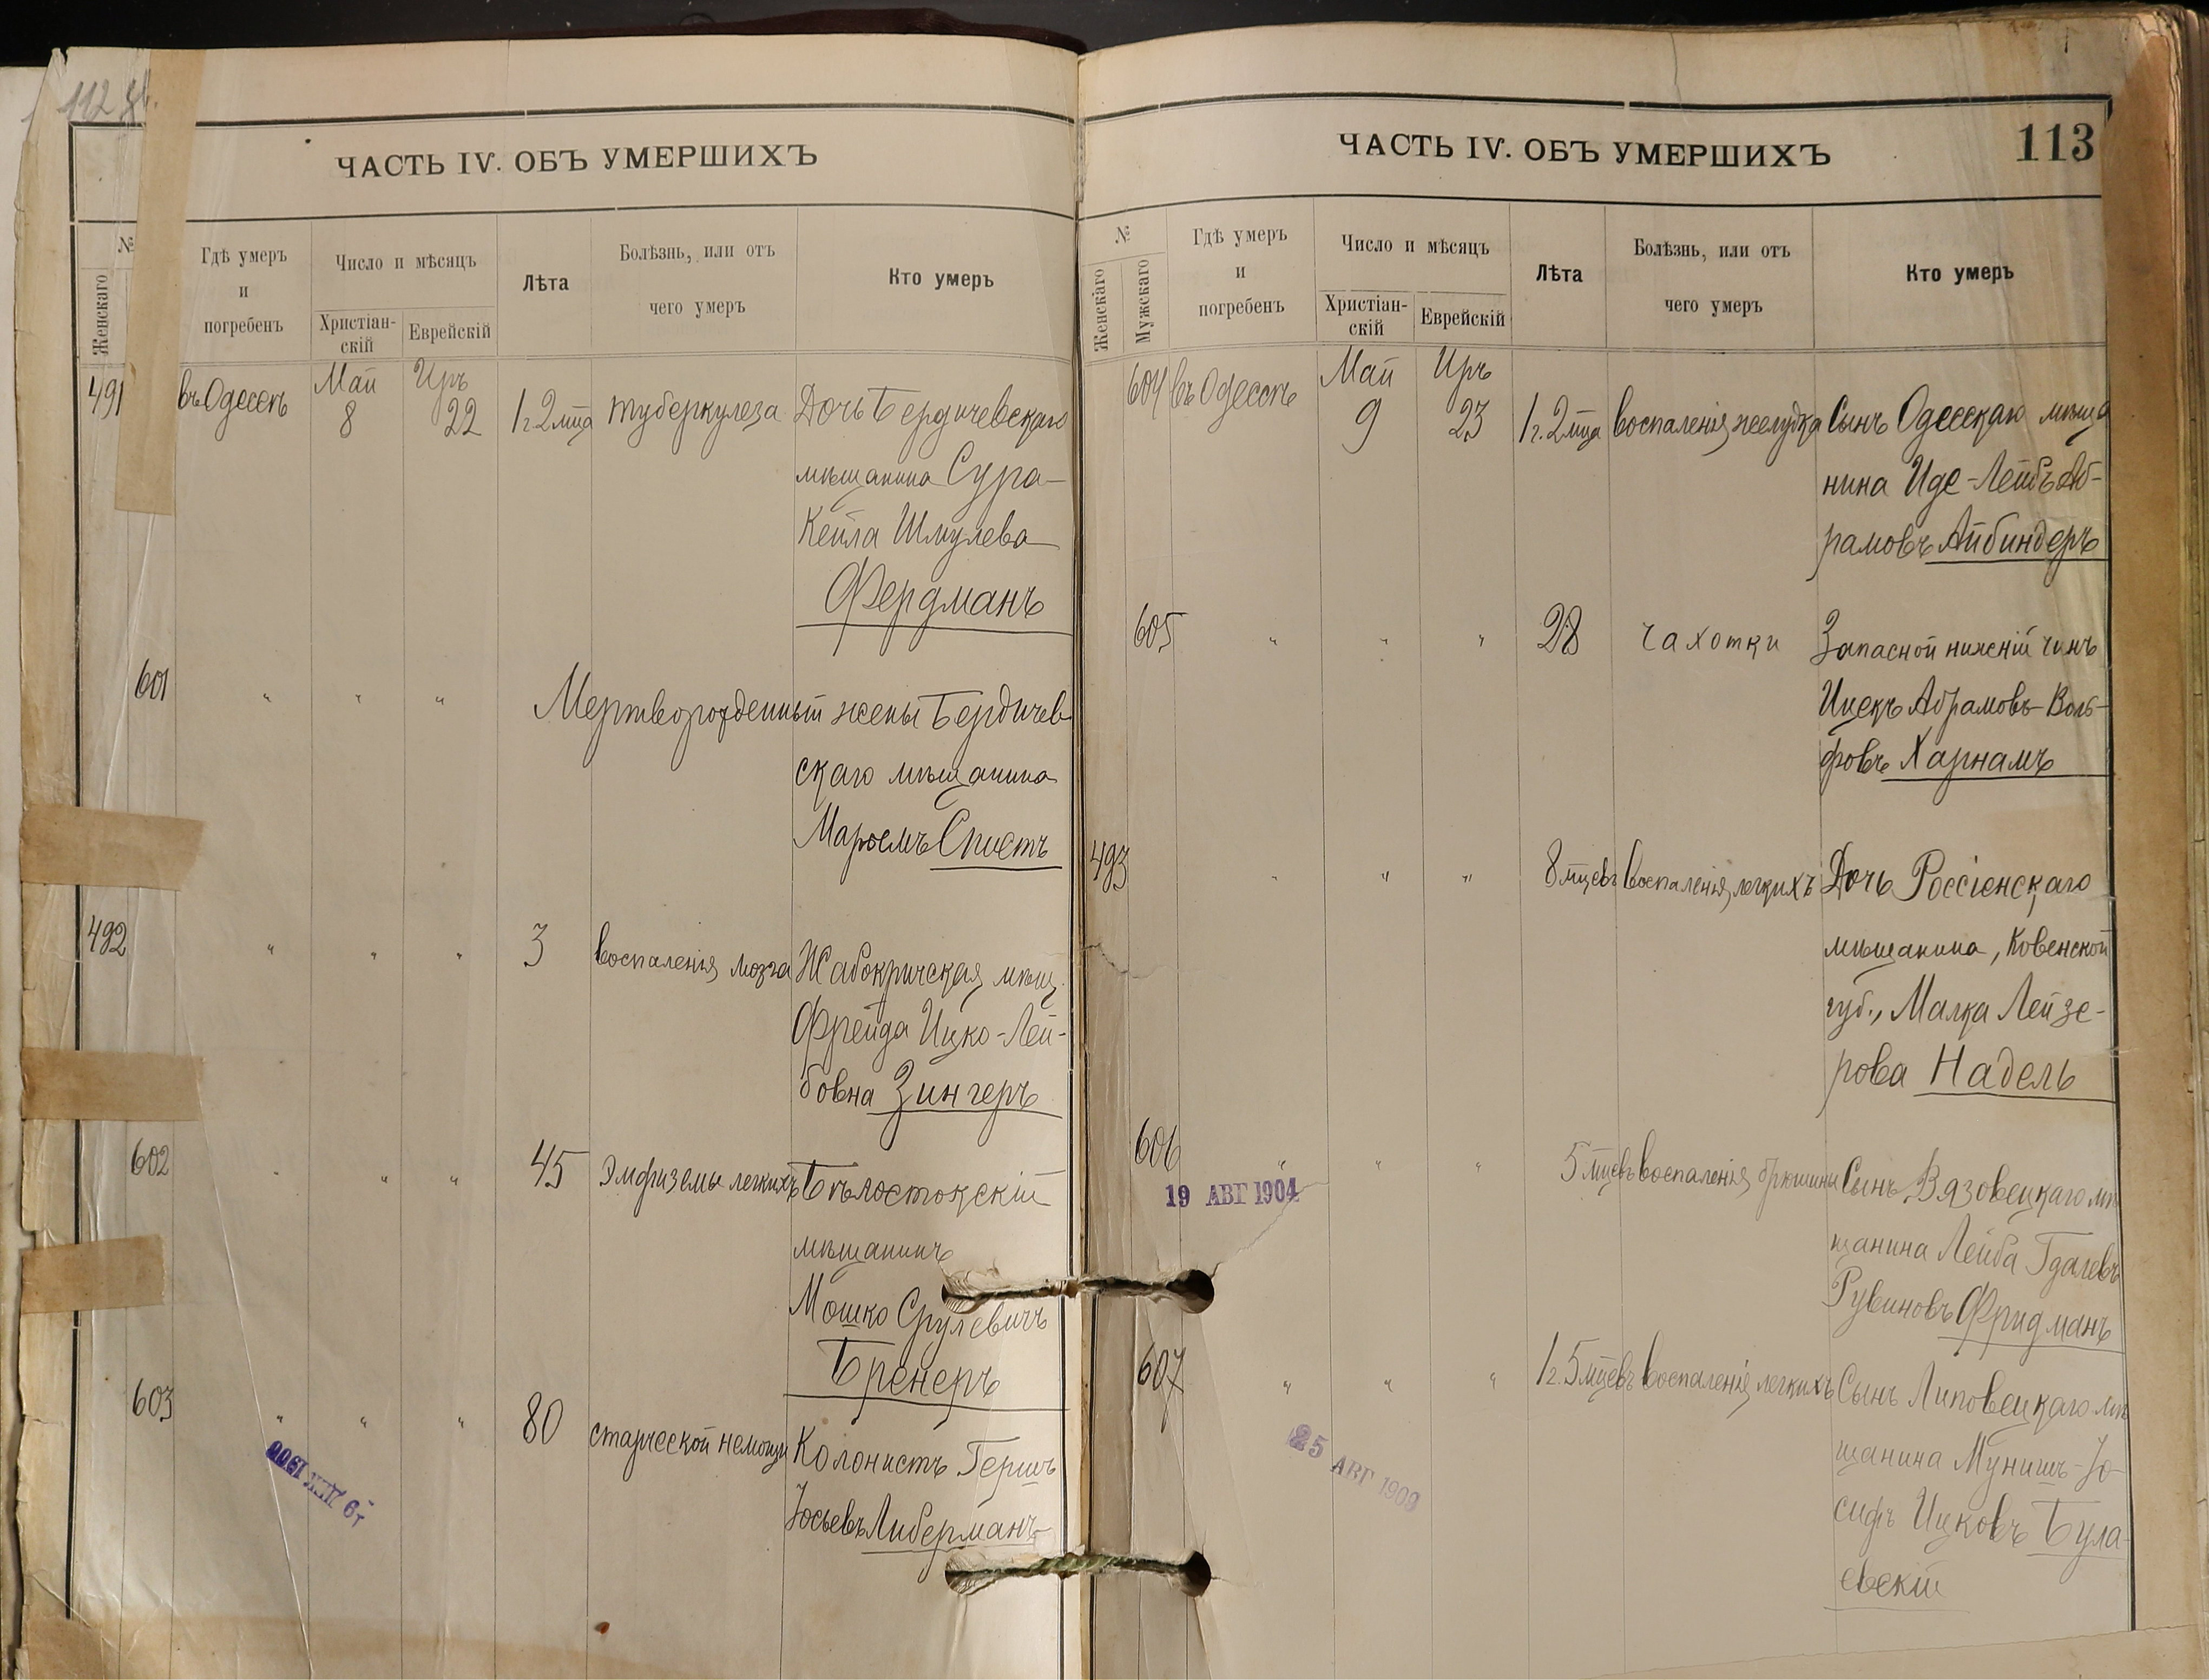 112 об.
ЧАСТЬ IV. ОБЪ УМЕРШИХЪ
№
Женскаго
Гдѣ умеръ
и
погребенъ
Число и мѣсяцъ
Христіан-
скій
Еврейскій
Лѣта
Болѣзнь, или отъ
чего умеръ
Кто умеръ
491 въ Одессѣ Май 8 Иръ 22 1 г. 2 мца туберкулеза Дочь Бердичевскаго
мѣщанина Сура-
Кейла Шмулева
Фердманъ
601 " " " Мертворожденный жены Бердичев
скаго мѣщанина
Марьемъ Спистъ
492 " " " 3 воспаленія мозга Жабокричская мѣщ.
Фрейда Ицко-Лей-
бовна Зингеръ
602 " " " 45 Эмфиземы легкихъ Бѣлостокскій
мѣщанинъ
Мошко Срулевичъ
Бренеръ
603 " " " 80 старческой немощи Колонистъ Гершъ
Іосьевъ Либерманъ
ЧАСТЬ IV. ОБЪ УМЕРШИХЪ
113
№
Женскаго
Мужскаго
Гдѣ умеръ
и
погребенъ
Число и мѣсяцъ
Христіан-
скій
Еврейскій
Лѣта
Болѣзнь, или отъ
чего умеръ
Кто умеръ
604 въ Одессѣ Май 9 Иръ 23 1 г. 2 мца воспаленія желудка Сынъ Одесскаго мѣща
нина Иде-Лейбъ Аб-
рамовъ Айбиндеръ
605 " " " 28 чахотки Запасной нижній чинъ
Ицекъ Абрамовъ-Воль-
фовъ Харнамъ
493 " " " 8 мцевъ воспаленія легкихъ Дочь Россіенскаго
мѣщанина, Ковенской
губ., Малка Лейзе-
рова Надель
606 " " " 5 мцевъ воспаленія брюшины Сынъ Вязовецкаго мѣ
щанина Лейба Гдалевъ
Рувиновъ Фридманъ
19 АВГ 1904
607 " " " 1 г. 5 мцевъ воспаленія легкихъ Сынъ Липовецкаго мѣ
щанина Мунишъ-Іо-
сифъ Ицковъ Була-
евскій
25 АВГ 1909